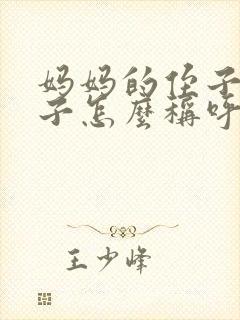 妈妈的侄子
子怎麼稱呼
王少峰